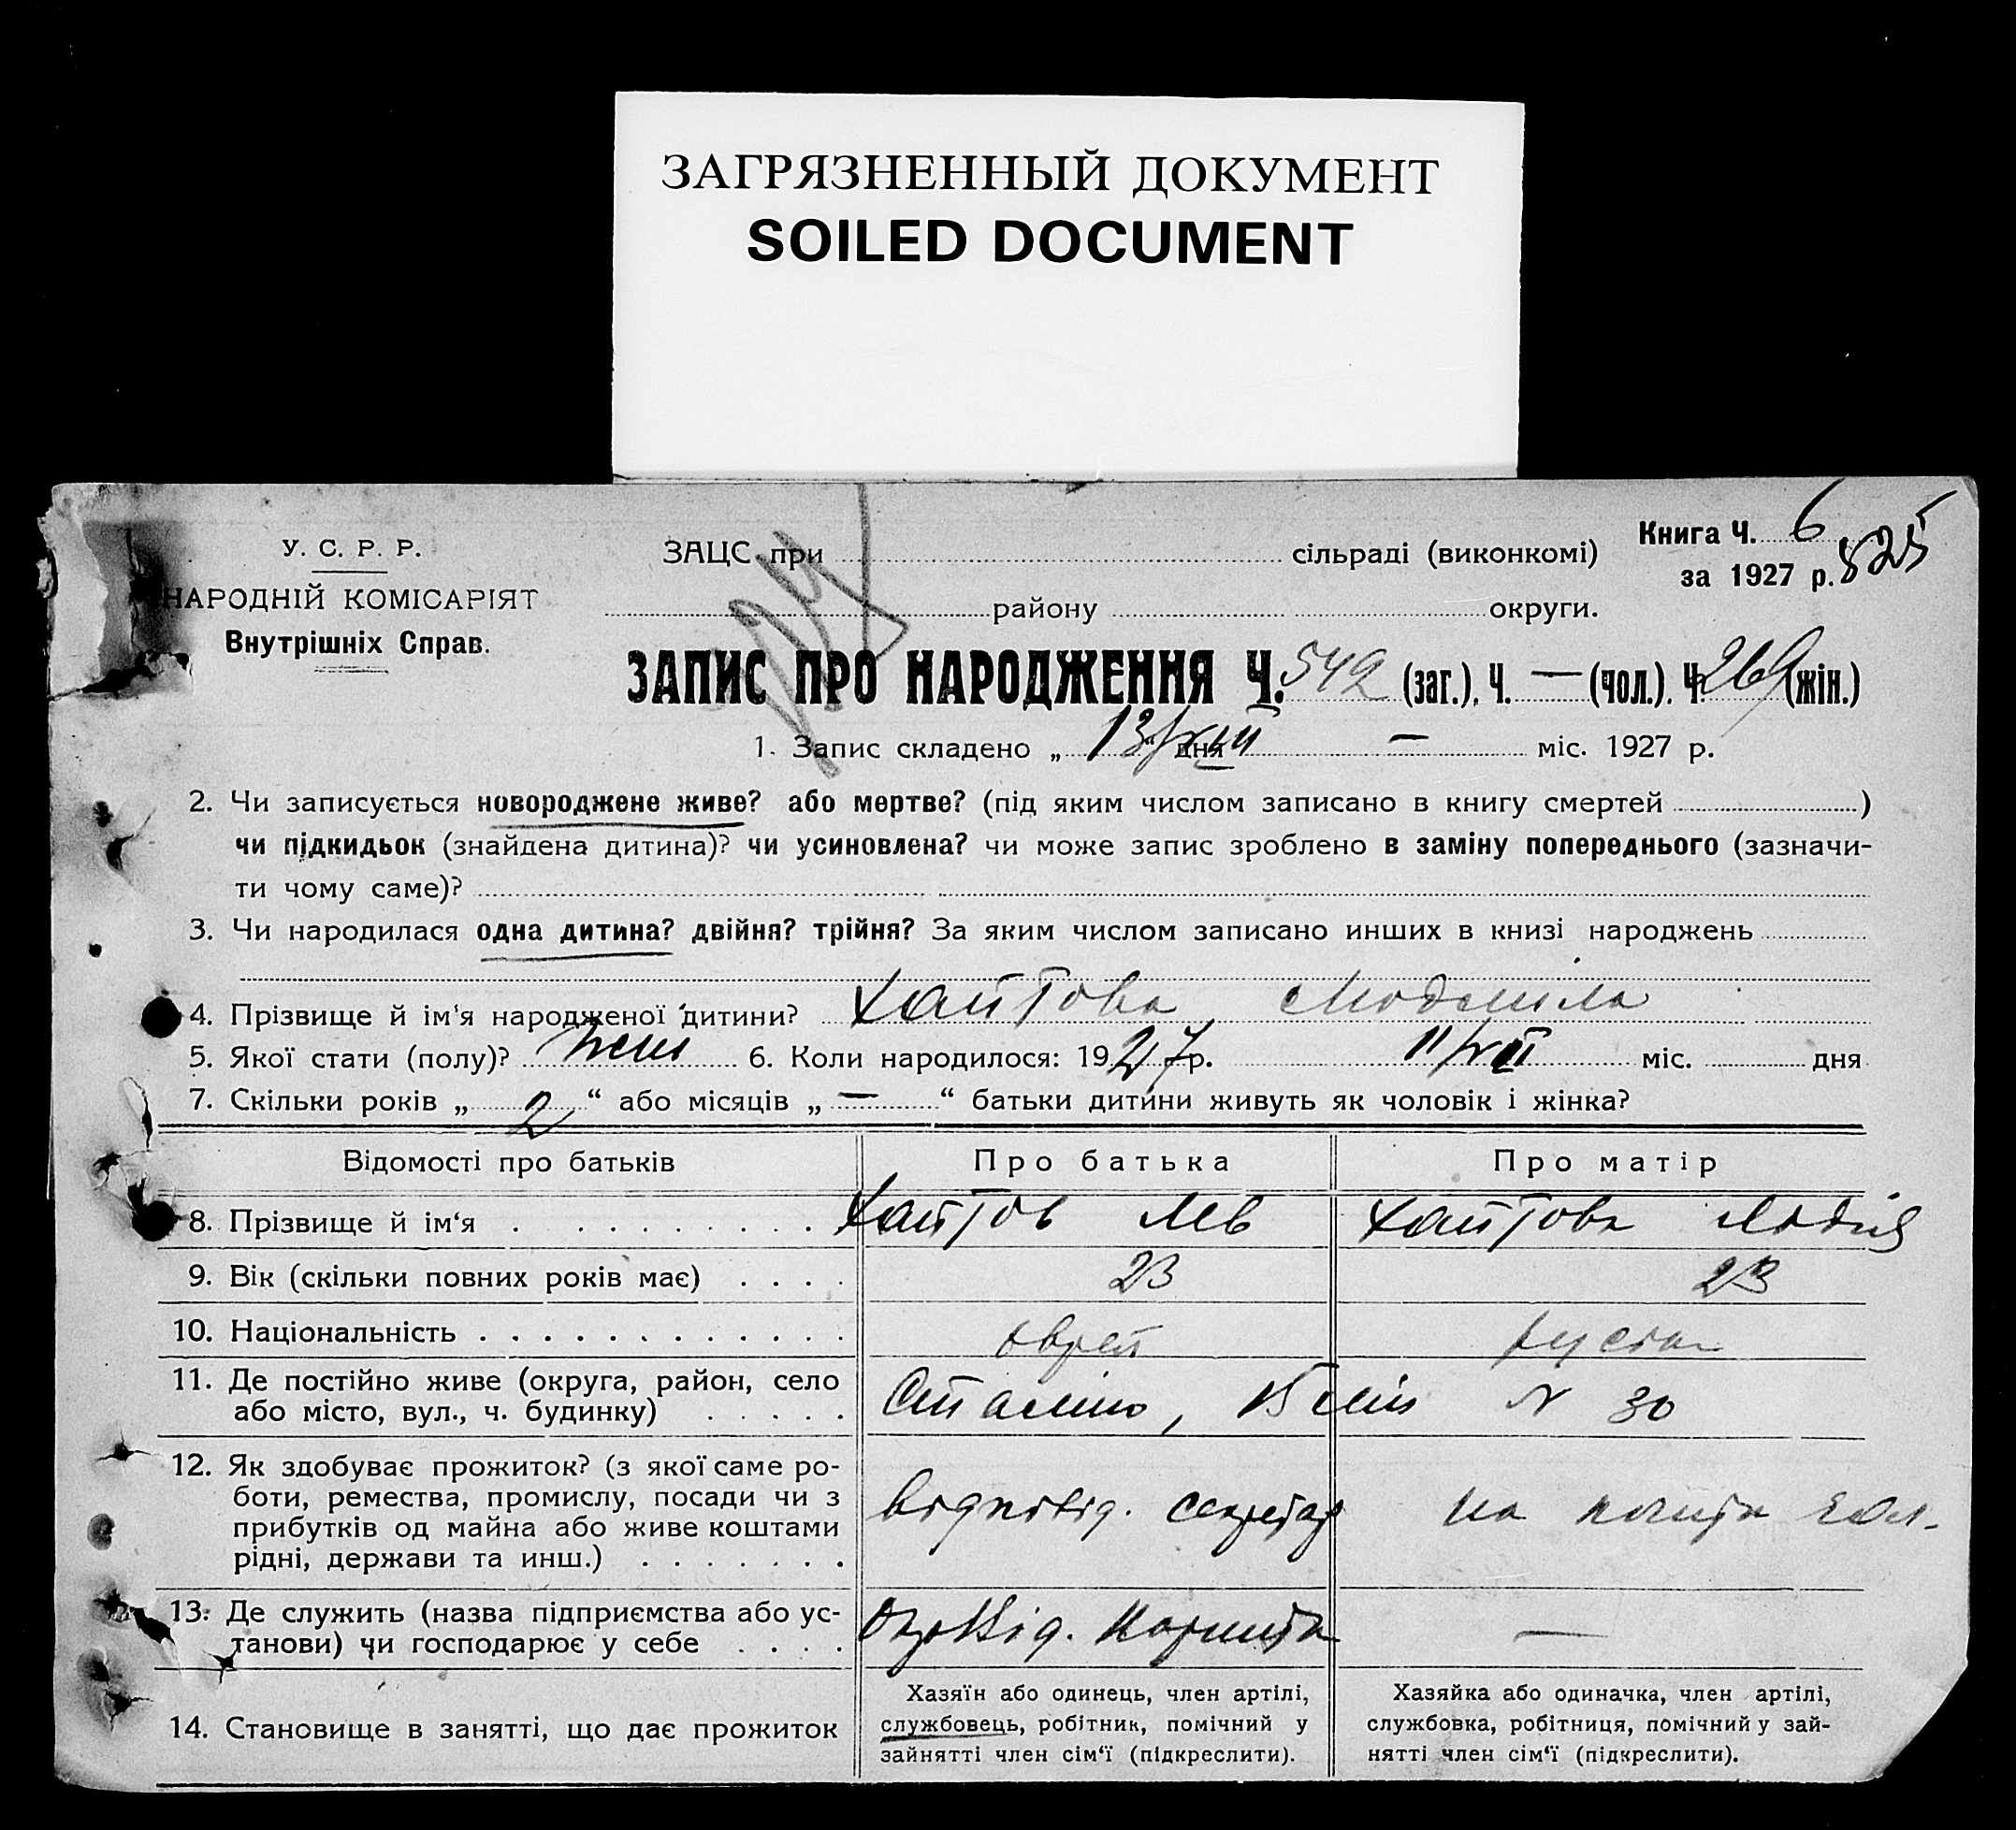 ЗАГРЯЗНЕННЫЙ ДОКУМЕНТ
SOILED DOCUMENT
У. С. Р. Р.
НАРОДНІЙ КОМІСАРІЯТ
Внутрішніх Справ.
ЗАЦС при сільраді (виконкомі)
Книга Ч. 6
за 1927 р. 525
району округи.
ЗАПИС ПРО НАРОДЖЕННЯ Ч. 549 (заг.), Ч. — (чол.). Ч. 269 (жін.)
1. Запис складено „ 13/XIII “ дня — міс. 1927 р.
2. Чи записується новороджене живе? або мертве? (під яким числом записано в книгу смертей )
чи підкидьок (знайдена дитина)? чи усиновлена? чи може запис зроблено в заміну попереднього (зазначи-
ти чому саме)?
3. Чи народилася одна дитина? двійня? трійня? За яким числом записано инших в книзі народжень
4. Прізвище й ім'я народженої дитини? Хаитова Людмила
5. Якої стати (полу)? жін 6. Коли народилося: 1927 р. 11/XII міс. дня
7. Скільки років „ 2 “ або місяців „ — “ батьки дитини живуть як чоловік і жінка?
Відомості про батьків Про батька Про матір
8. Прізвище й ім‘я Хаитов Лев Хаитова Лидія
9. Вік (скільки повних років має) 23 23
10. Національність еврей руська
11. Де постійно живе (округа, район, село
або місто, вул., ч. будинку) Сталіно, 15 лінія N 30
12. Як здобуває прожиток? (з якої саме ро-
боти, ремества, промислу, посади чи з
прибутків од майна або живе коштами
рідні, держави та инш.)
відповід. секретар на кошти чол.
13. Де служить (назва підприємства або ус-
танови) чи господарює у себе —
14. Становище в занятті, що дає прожиток
Хазяїн або одинець, член артілі,
службовець, робітник, помічний у
зайнятті член сім‘ї (підкреслити).
Хазяйка або одиначка, член артілі,
службовка, робітниця, помічний у зай-
нятті член сім‘ї (підкреслити).